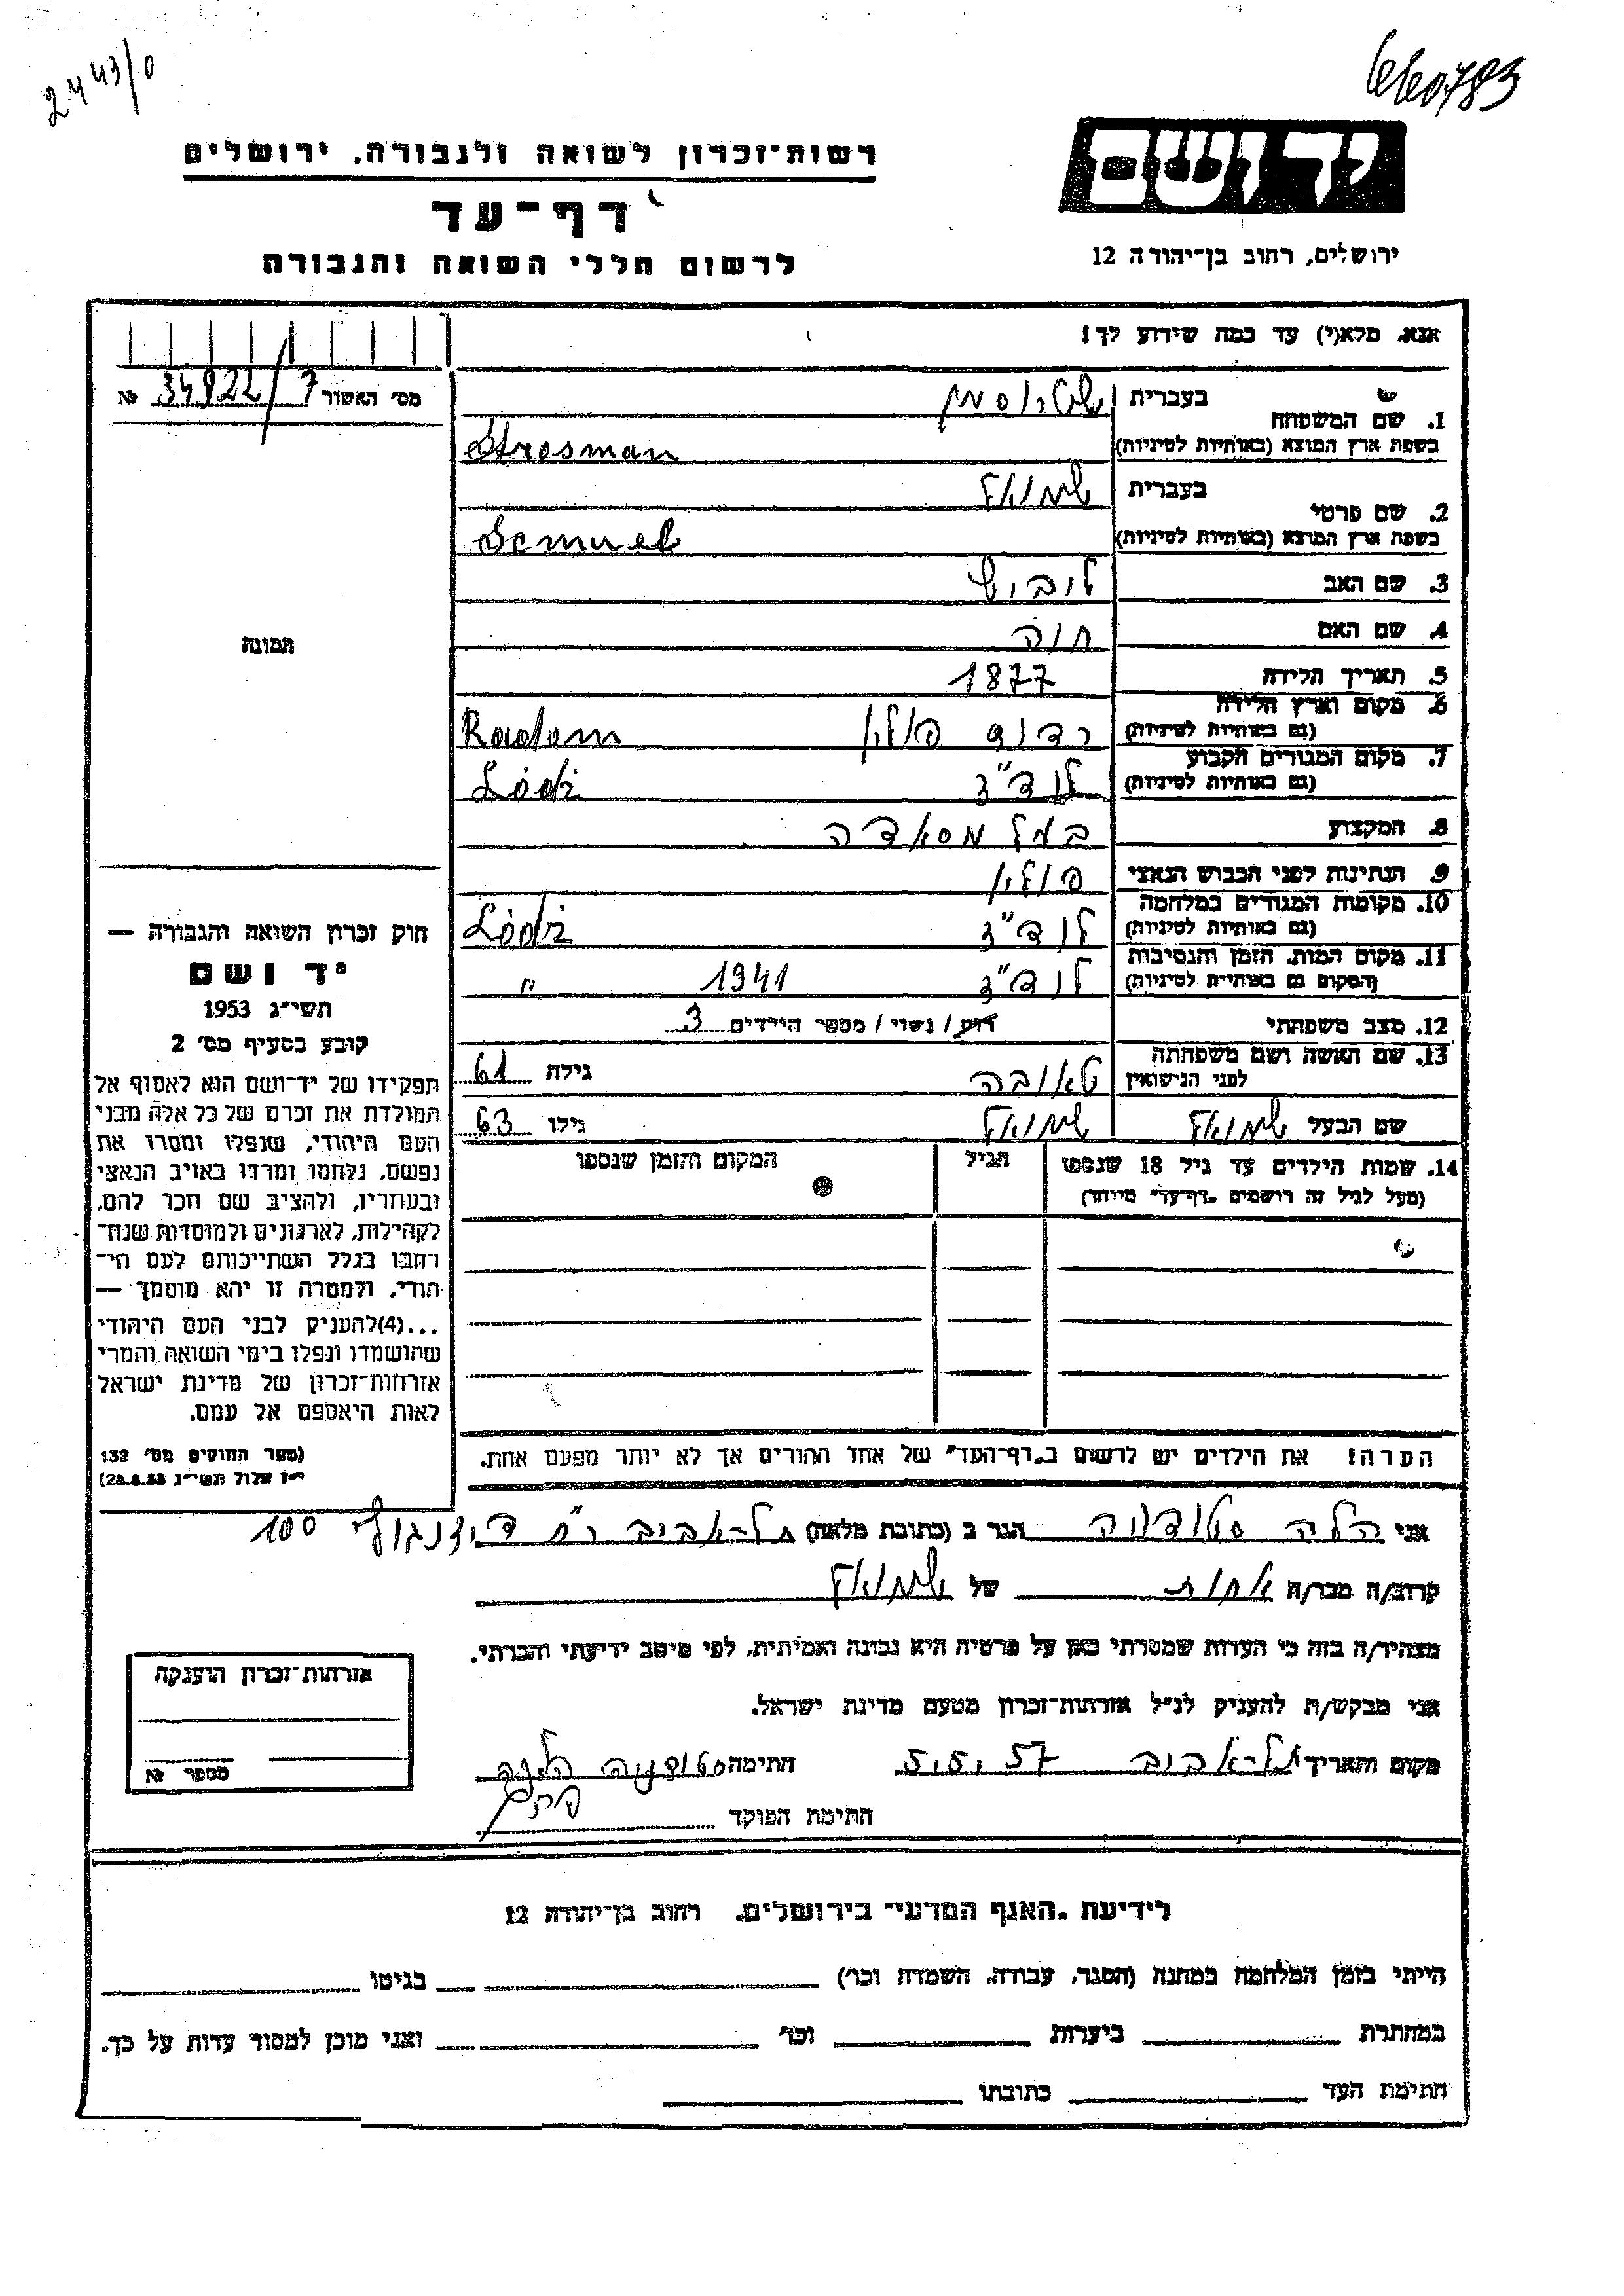 2443/0
660783
יד ושם
רשות־זכרון לשואה ולגבורה, ירושלים
דף־עד
לרשום חללי השואה והגבורה
ירושלים, רחוב בן־יהודה 12
אנא, מלא(י) עד כמה שידוע לך!
מס' האשור 34922/7 №
1. שם המשפחה
בעברית שטרוסמן
בשפת ארץ המוצא (באותיות לטיניות) Strosman
2. שם פרטי
בעברית שמואל
בשפת ארץ המוצא (באותיות לטיניות) Semuel
3. שם האב לייביש
4. שם האם חוה
תמונה
5. תאריך הלידה 1877
6. מקום וארץ הלידה
(גם באותיות לטיניות) רדום פולין Radom
7. מקום המגורים הקבוע
(גם באותיות לטיניות) לודז' Łódź
8. המקצוע בעל מסאדה
9. הנתינות לפני הכבוש הנאצי פולין
10. מקומות המגורים במלחמה
(גם באותיות לטיניות) לודז' Łódź
11. מקום המות, הזמן והנסיבות
(המקום גם באותיות לטיניות) לודז' 1941 "
12. מצב משפחתי רוק / נשוי / מספר הילדים 3
13. שם האשה ושם משפחתה
לפני הנישואין טאובה גילה 61
שם הבעל שמואל שמואל גילו 63
14. שמות הילדים עד גיל 18 שנספו
(מעל לגיל זה רושמים "דף־עד" מיוחד)
הגיל
המקום והזמן שנספו
הערה! את הילדים יש לרשום ב"דף־העד" של אחד ההורים אך לא יותר מפעם אחת.
חוק זכרון השואה והגבורה —
יד ושם
תשי"ג 1953
קובע בסעיף מס' 2
תפקידו של יד־ושם הוא לאסוף אל
המולדת את זכרם של כל אלה מבני
העם היהודי, שנפלו ומסרו את
נפשם, נלחמו ומרדו באויב הנאצי
ובעוזריו, ולהציב שם וזכר להם,
לקהילות, לארגונים ולמוסדות שנח־
רבו בגלל השתייכותם לעם הי־
הודי, ולמטרה זו יהא מוסמך —
...(4)להעניק לבני העם היהודי
שהושמדו ונפלו בימי השואה והמרי
אזרחות־זכרון של מדינת ישראל
לאות היאספם אל עמם.
(ספר החוקים מס' 132
י"ז אלול תשי"ג 28.8.53)
אני הלה הגר ב (כתובת מלאה) תל-אביב רח' דיזנגוף 100
קרוב/ה מכר/ה אחות של שמואל
מצהיר/ה בזה כי העדות שמסרתי כאן על פרטיה היא נכונה ואמיתית, לפי מיטב ידיעתי והכרתי.
אני מבקש/ת להעניק לנ"ל אזרחות־זכרון מטעם מדינת ישראל.
מקום ותאריך תל-אביב 5.5.57 חתימה
חתימת הפוקד
אזרחות־זכרון הוענקה
מספר №
לידיעת "האגף המדעי" בירושלים, רחוב בן־יהודה 12
הייתי בזמן המלחמה במחנה (הסגר, עבודה, השמדה וכו') בגיטו
במחתרת ביערות וכו' ואני מוכן למסור עדות על כך.
חתימת העד כתובתו